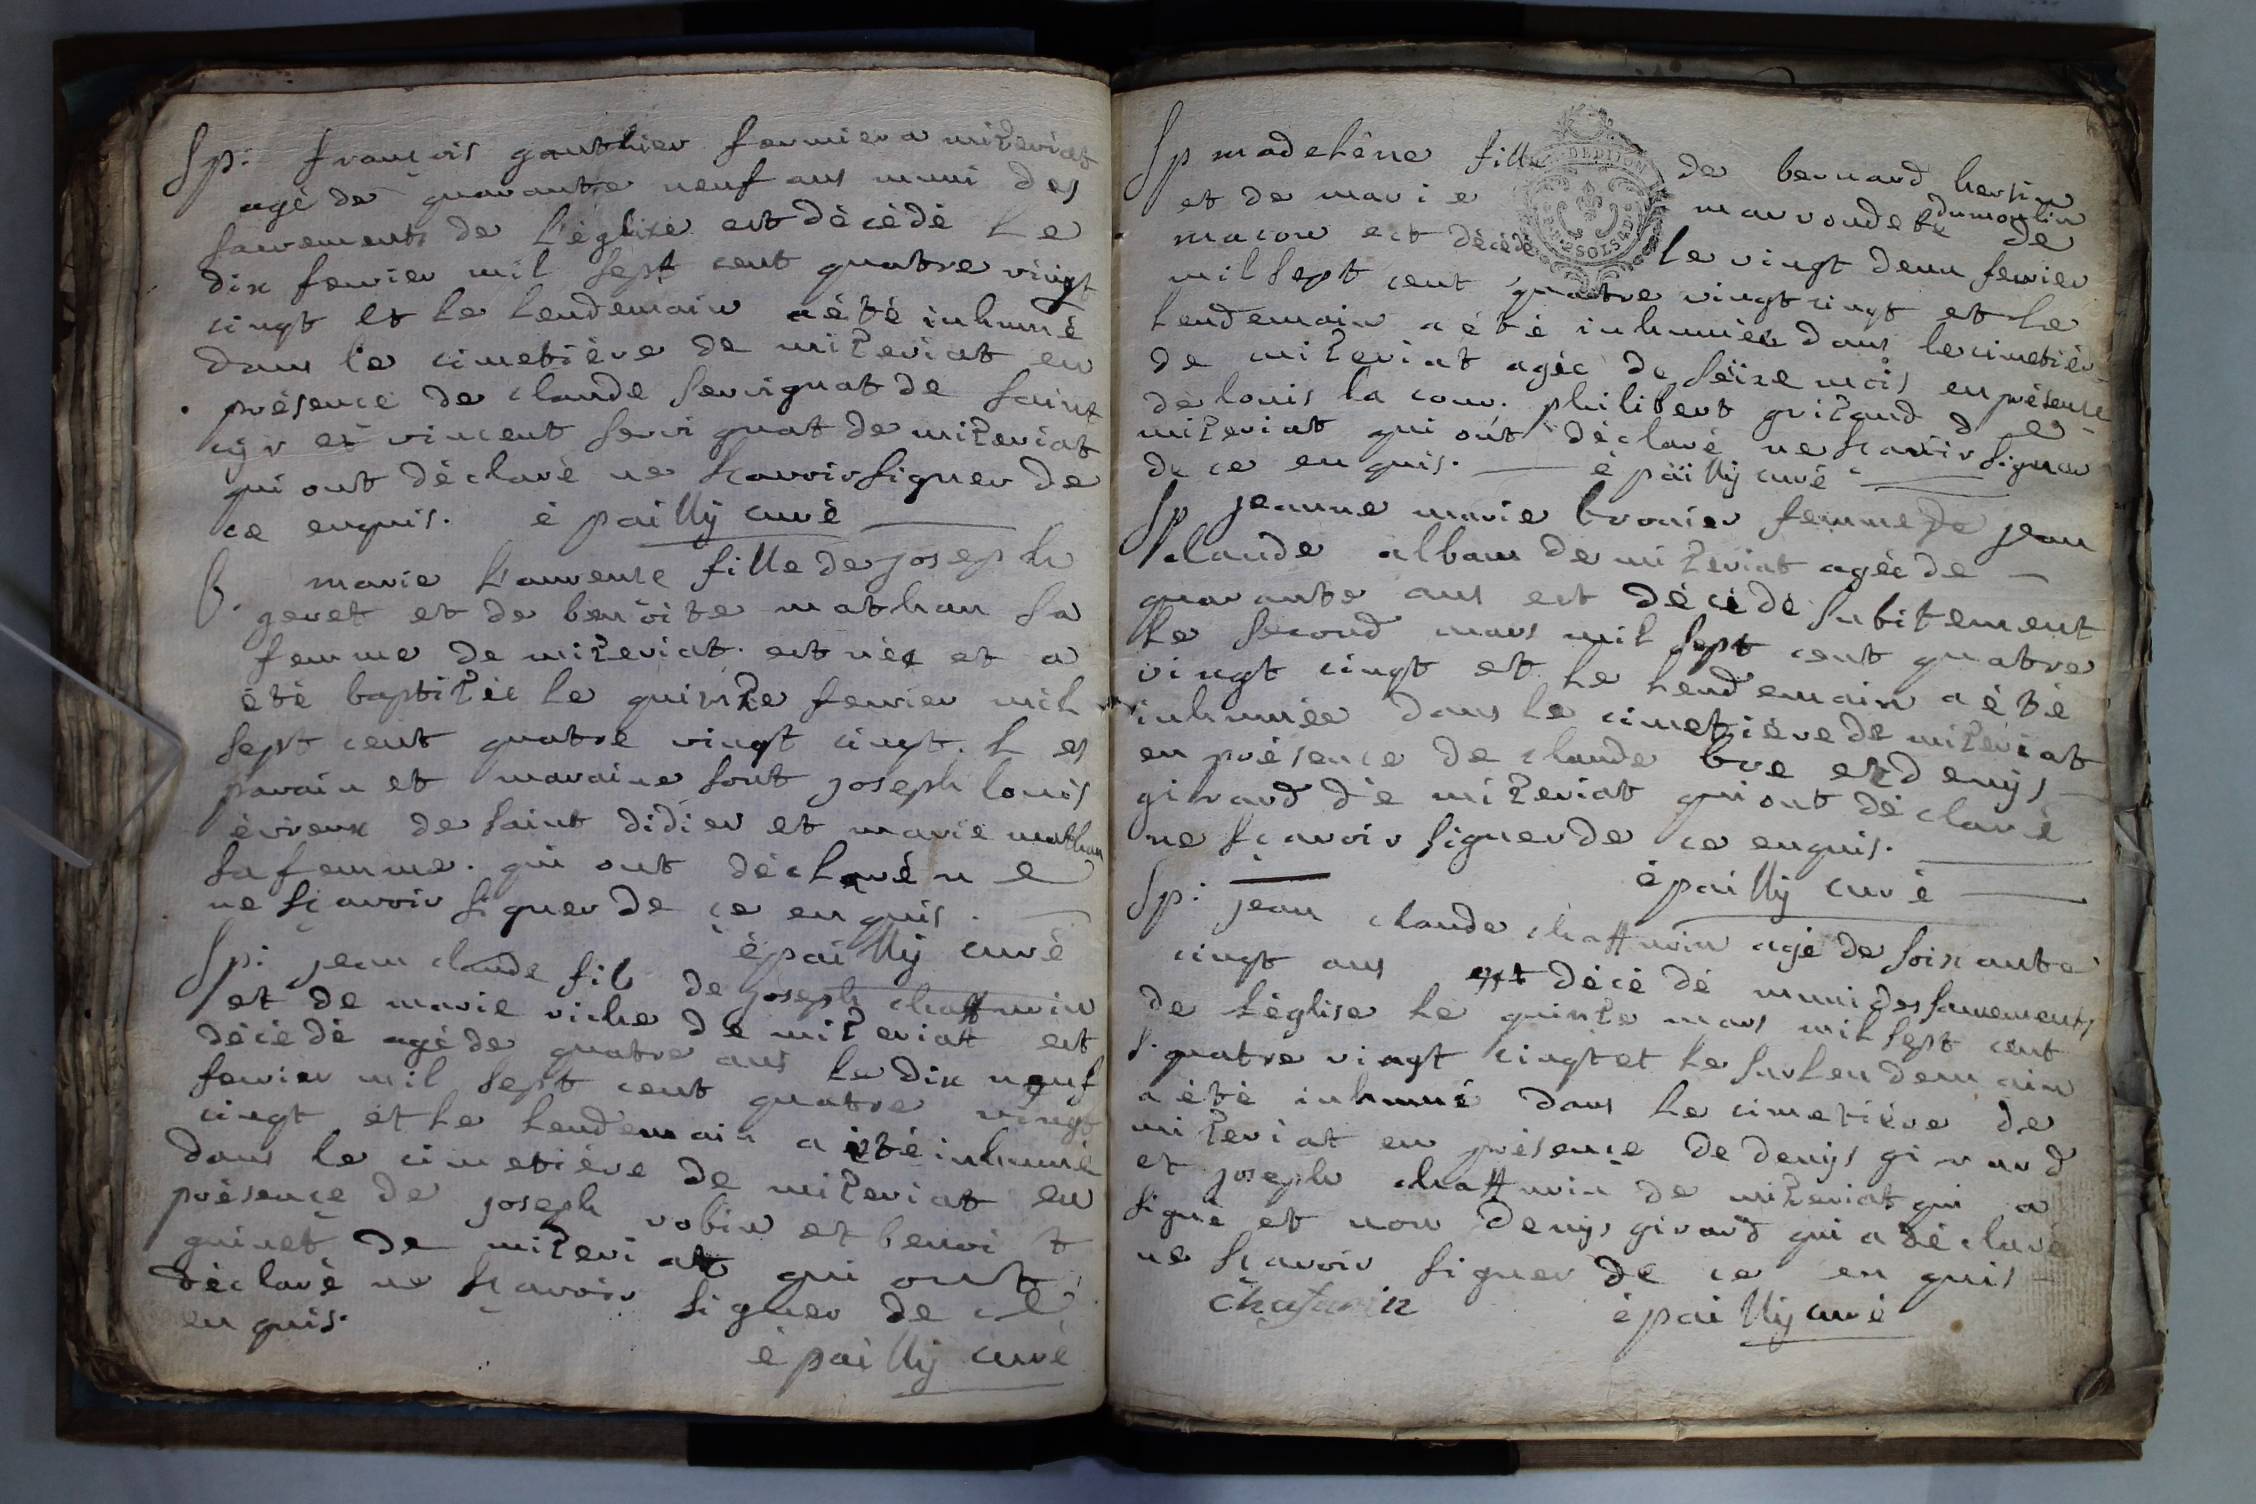 Sp: françois gauthier fermier a mizeriat
agé de quarante neuf ans muni des
sacrements de l'église est décédé le
dix fevrier mil sept cent quatre vingt
cinqt et le lendemain a été inhumé
dans le cimetière de mizeriat en
présence de claude servignat de saint
cÿr et vincent servignat de mizeriat
qui ont déclaré ne sçavoir signer de
ce enquis. épaillÿ curé
b. marie laurence fille de joseph
geret et de benoite mathan sa
femme de mizeriat est née et a
été baptizée le quinze fevrier mil
sept cent quatre vingt cinqt. les
parain et maraine sont joseph louis
évreux de saint didier et marie mathan
sa femme. qui ont déclaré ne
ne sçavoir signer de ce enquis.
épaillÿ curé
Sp: jean claude fils de joseph chaffurin
et de marie viche de mizeriat est
décédé agé de quatre ans le dix neuf
fevrier mil sept cent quatre vingt
cinqt et le lendemain a été inhumé
dans le cimetière de mizeriat en
présence de joseph robin et benoit
guinet de mizeriat qui ont
déclaré ne sçavoir signer de ce
enquis.
épaillÿ curé
Sp madelène fille de bernard
et de marie de
dumoulin
macon est décédé le vingt deux fevrier
mil sept cent quatre vingt cinqt et le
lendemain a été inhumée dans le cimetièr
de mizeriat agée de séize mois en présence
de louis la cour. philibert grizaud de
mizeriat qui ont déclaré ne sçavoir signer
de ce enquis. épaillÿ curé
Sp jeanne marie bronier femme de jean
claude alban de mizeriat agée de
quarante ans est décédé subitement
le second mars mil sept cent quatre
vingt cinqt et le lendemain a été
inhumée dans le cimetière de mizeriat
en présence de claude bre et denÿs
girard de mizeriat qui ont déclaré
ne sçavoir signer de ce enquis.
épaillÿ curé
Sp: jean claude chaffurin agé de soixante
cinqt ans est décédé muni des sacrements
de l'église le quinze mars mil sept cent
quatre vingt cinqt et le surlendemain
a été inhumé dans le cimetière de
mizeriat en présence de denÿs girard
et joseph chaffurin de mizeriat qui a
signé et non denÿs girard qui a déclaré
ne sçavoir signer de ce enquis
chafurin épaillÿ curé